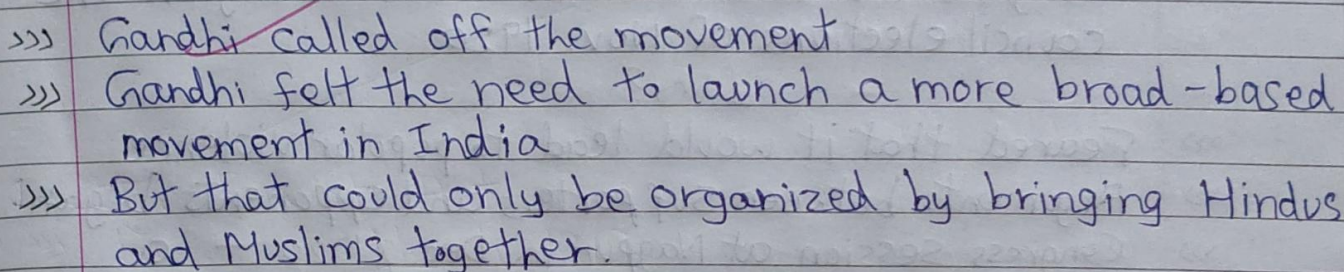 >>> Gandhi called off the movement
>>> Gandhi felt the need to launch a more broad-based
movement in India
>>> But that could only be organized by bringing Hindus
and Muslims together.